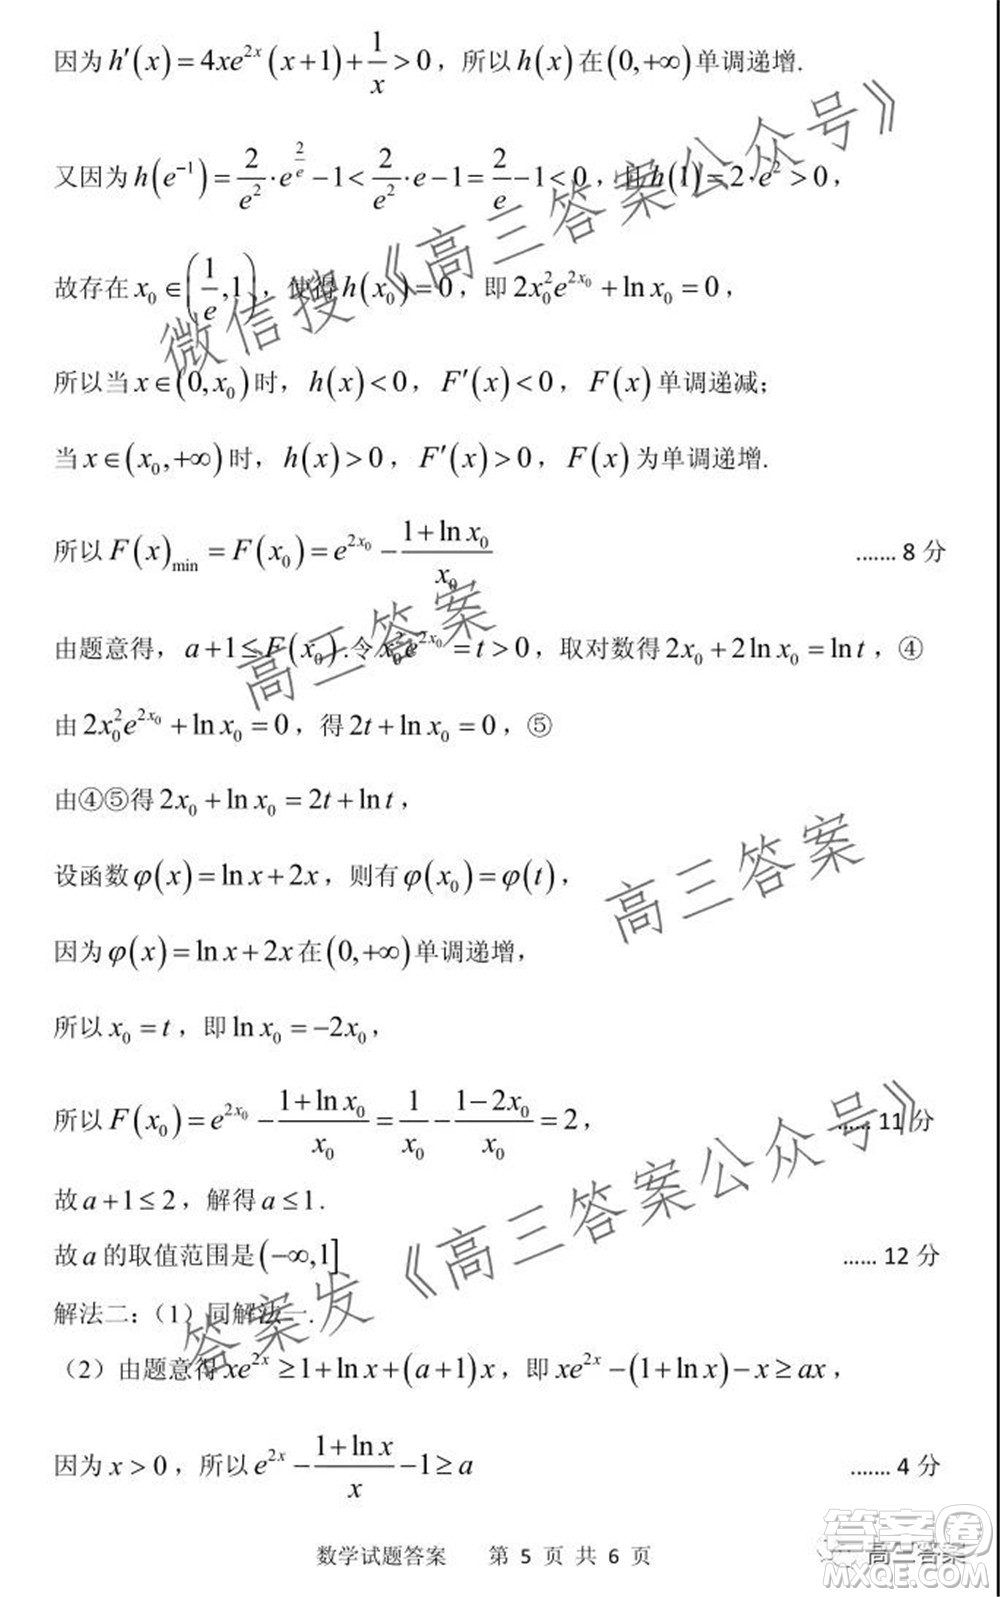 因为 h′(x)=4xe^{2x}(x+1)+\frac{1}{x}>0，所以 h(x) 在(0,+∞)单调递增.
又因为 h(e^{-1})=\frac{2}{e^2}·e^{\frac{2}{e}}−1<\frac{2}{e^2}·e−1=\frac{2}{e}−1<0，且 h(1)=2·e^2>0，
故存在 x_0∈(\frac{1}{e},1)，使得 h(x_0)=0，即 2x_0^2e^{2x_0}+ln x_0=0，
所以当 x∈(0,x_0)时，h(x)<0，F′(x)<0，F(x)单调递减；
当 x∈(x_0,+∞)时，h(x)>0，F′(x)>0，F(x)为单调递增.
所以 F(x)_{min}=F(x_0)=e^{2x_0}−\frac{1+ln x_0}{x_0} ……. 8 分
由题意得，a+1≤F(x_0).令 x_0^2e^{2x_0}=t>0，取对数得 2x_0+2ln x_0=ln t，④
由 2x_0^2e^{2x_0}+ln x_0=0，得 2t+ln x_0=0，⑤
由④⑤得 2x_0+ln x_0=2t+ln t，
设函数 φ(x)=ln x+2x，则有 φ(x_0)=φ(t)，
因为 φ(x)=ln x+2x 在(0,+∞)单调递增，
所以 x_0=t，即 ln x_0=−2x_0，
所以 F(x_0)=e^{2x_0}−\frac{1+ln x_0}{x_0}=\frac{1}{x_0}−\frac{1−2x_0}{x_0}=2， …… 11 分
故 a+1≤2，解得 a≤1.
故 a 的取值范围是(−∞,1] …… 12 分
解法二：（1）同解法一.
（2）由题意得 xe^{2x}≥1+ln x+(a+1)x，即 xe^{2x}−(1+ln x)−x≥ax，
因为 x>0，所以 e^{2x}−\frac{1+ln x}{x}−1≥a ……. 4 分
数学试题答案 第 5 页 共 6 页
微信搜《高三答案公众号》
高三答案
高三答案
答案发《高三答案公众号》
高三答案
答案圈
MXQE.COM